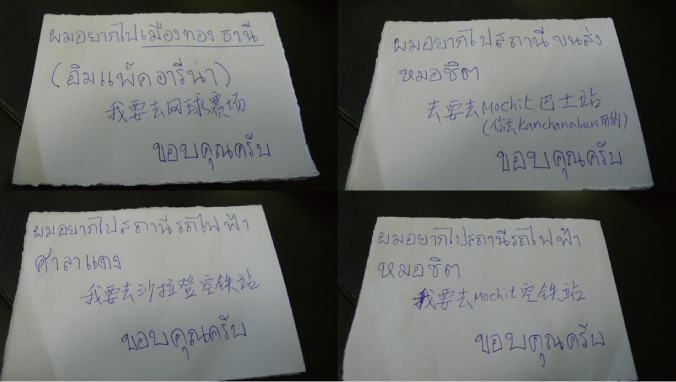 ผมอยากไปเมืองทองธานี
(อิมแพ็คอารีน่า)
我要去网球赛场
ขอบคุณครับ
ผมอยากไปสถานีขนส่ง
หมอชิต
去要去Mochit巴士站
(你去Kanchanaburi用的)
ขอบคุณครับ
ผมอยากไปสถานีรถไฟฟ้า
ศาลาแดง
我要去沙拉登空铁站
ขอบคุณครับ
ผมอยากไปสถานีรถไฟฟ้า
หมอชิต
我要去Mochit空铁站
ขอบคุณครับ